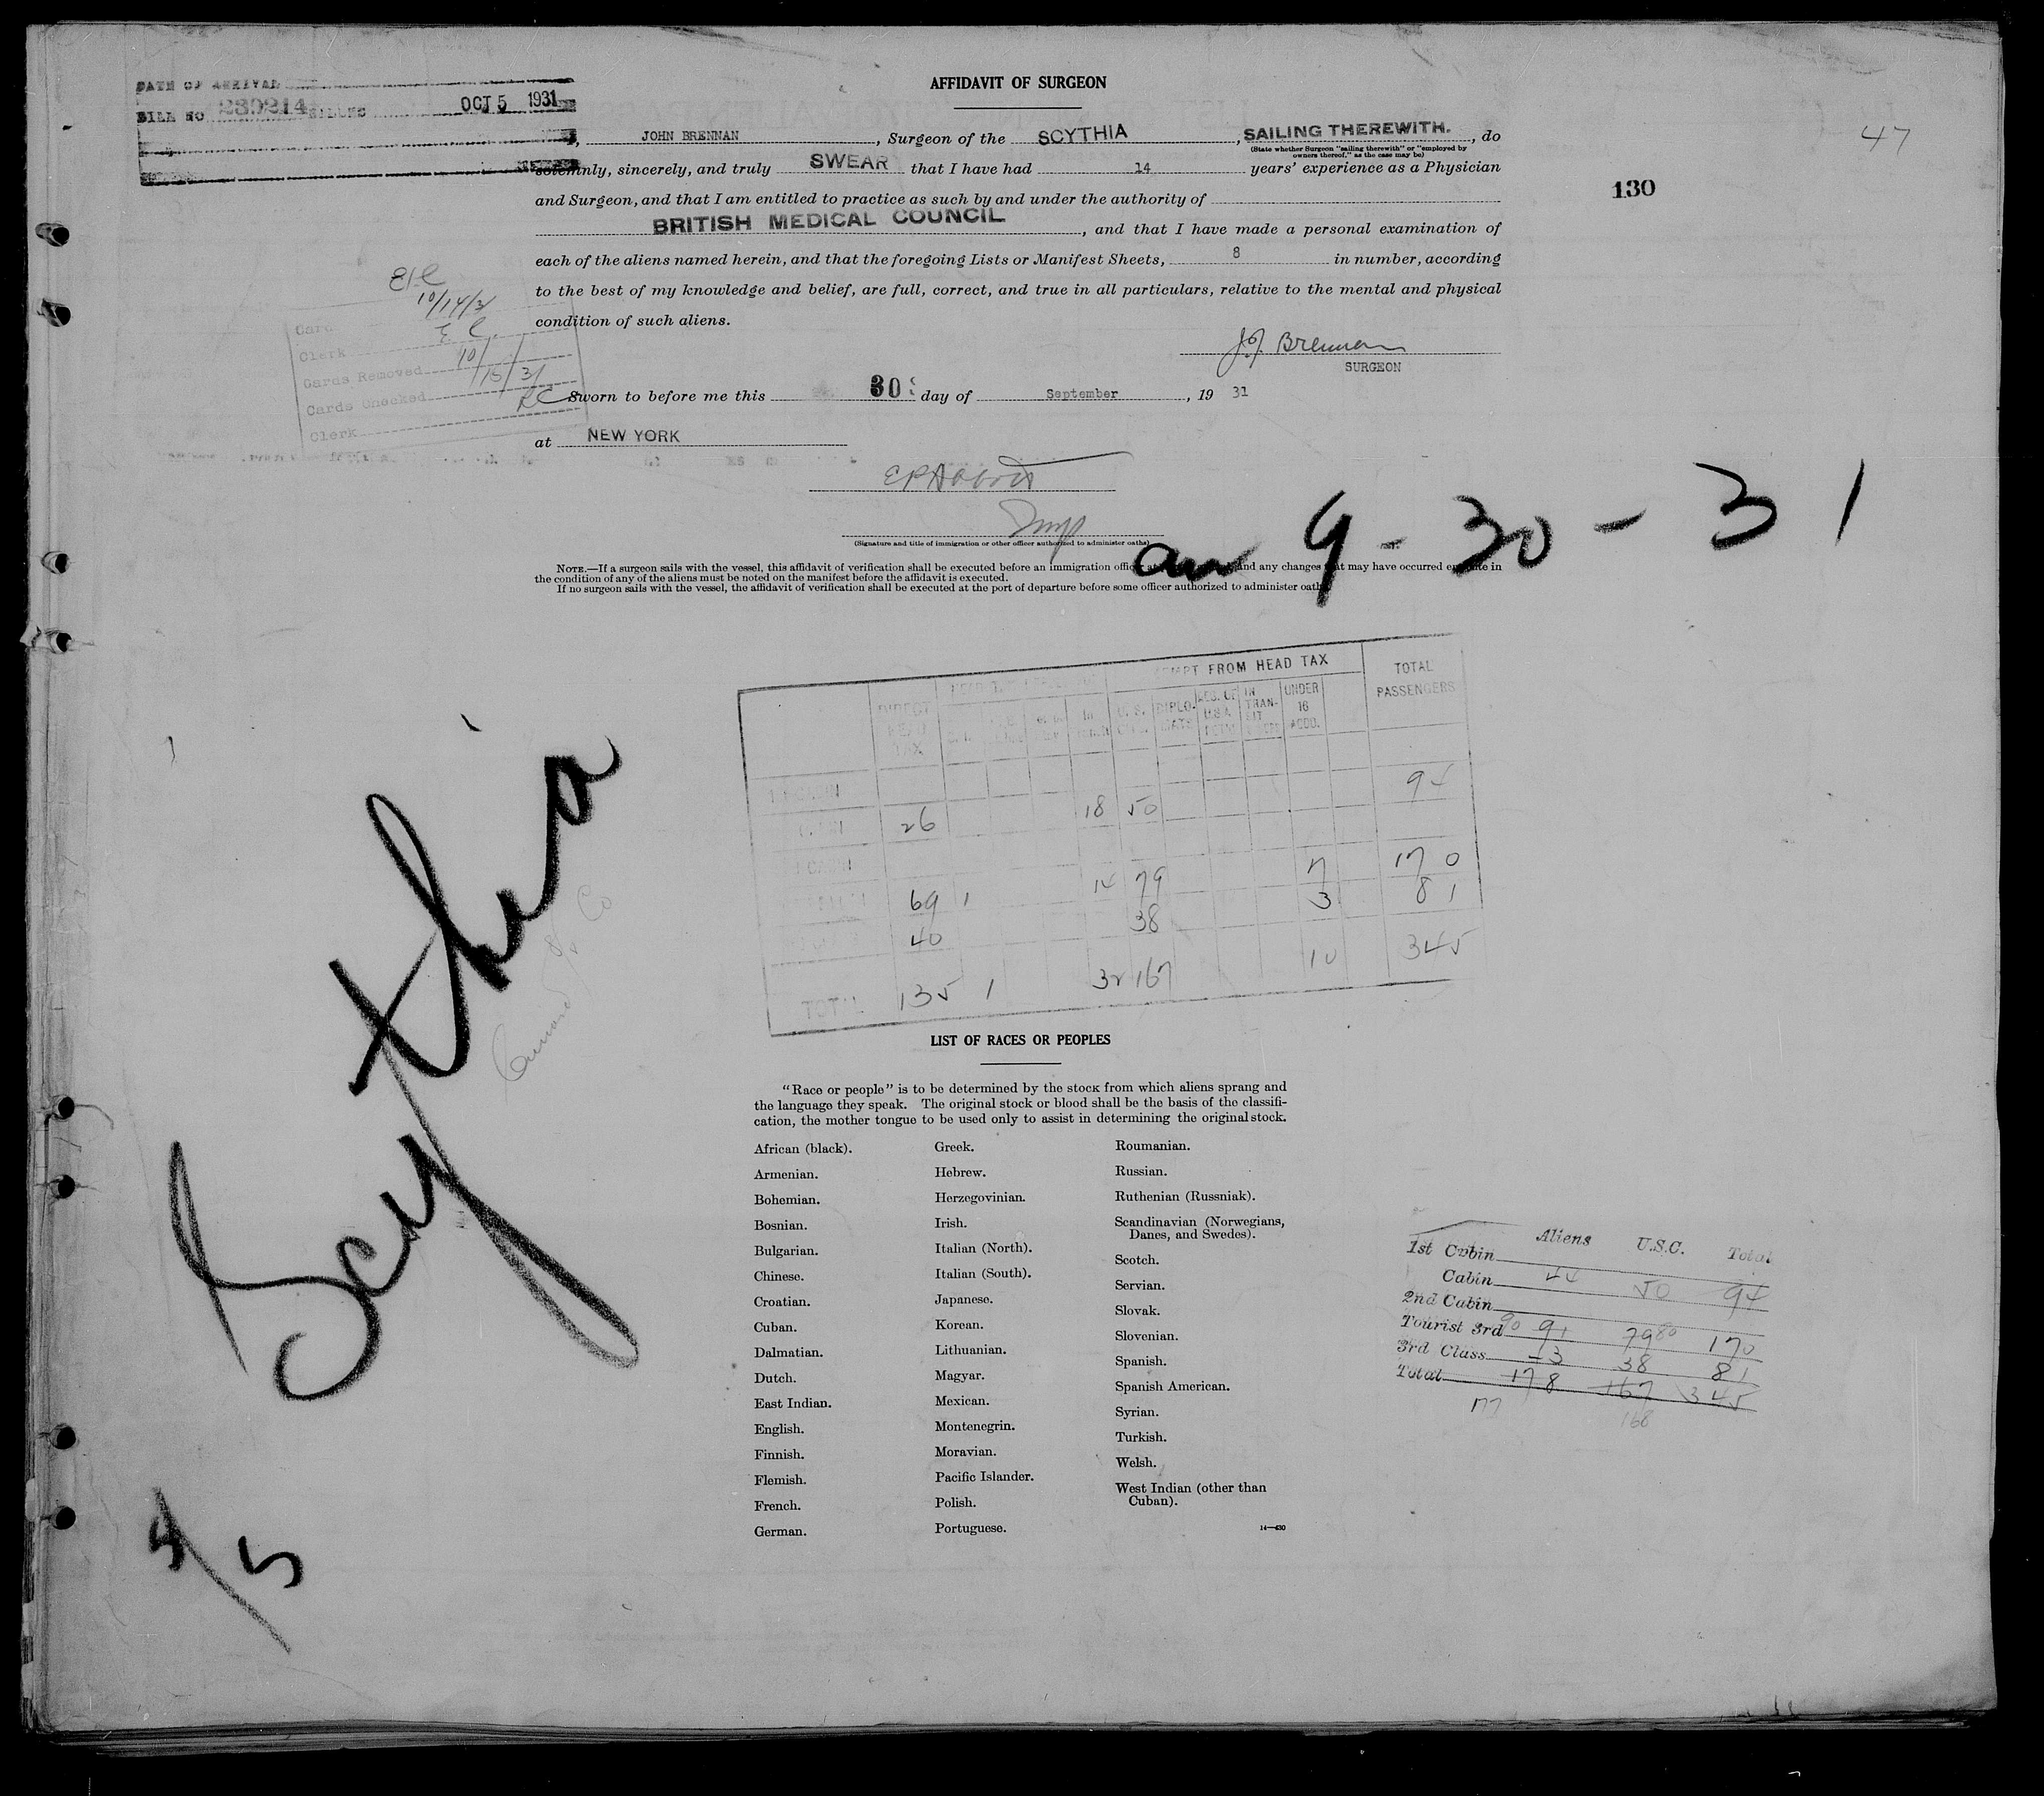 AFFIDAVIT OF SURGEON
DATE OF ARRIVAL
BILL NO 239214 OCT 5 1931
47
130
JOHN BRENNAN, Surgeon of the SCYTHIA, SAILING THEREWITH., do
(State whether Surgeon "sailing therewith" or "employed by
owners thereof," as the case may be)
solemnly, sincerely, and truly SWEAR that I have had 14 years' experience as a Physician
and Surgeon, and that I am entitled to practice as such by and under the authority of
BRITISH MEDICAL COUNCIL, and that I have made a personal examination of
each of the aliens named herein, and that the foregoing Lists or Manifest Sheets, 8 in number, according
to the best of my knowledge and belief, are full, correct, and true in all particulars, relative to the mental and physical
condition of such aliens.
J.J. Brennan
SURGEON
10/14/31
Clerk
Cards Removed 10/15/31
Cards Checked
Clerk
Sworn to before me this 30 day of September, 19 31
at NEW YORK
Insp
(Signature and title of immigration or other officer authorized to administer oaths)
arr 9-30-31
NOTE.—If a surgeon sails with the vessel, this affidavit of verification shall be executed before an immigration officer and any changes that may have occurred en route in
the condition of any of the aliens must be noted on the manifest before the affidavit is executed.
If no surgeon sails with the vessel, the affidavit of verification shall be executed at the port of departure before some officer authorized to administer oaths
Scythia
Cunard SS Co
5/5
EXEMPT FROM HEAD TAX
TOTAL PASSENGERS
DIRECT HEAD TAX
U.S. DIPLOMATS RES. OF U.S.A. IN TRANSIT UNDER 16 ACCD.
26 18 50 94
69 1 14 79 7 170
40 38 3 81
TOTAL 135 1 32 167 10 345
LIST OF RACES OR PEOPLES
"Race or people" is to be determined by the stock from which aliens sprang and
the language they speak. The original stock or blood shall be the basis of the classifi-
cation, the mother tongue to be used only to assist in determining the original stock.
African (black).
Armenian.
Bohemian.
Bosnian.
Bulgarian.
Chinese.
Croatian.
Cuban.
Dalmatian.
Dutch.
East Indian.
English.
Finnish.
Flemish.
French.
German.
Greek.
Hebrew.
Herzegovinian.
Irish.
Italian (North).
Italian (South).
Japanese.
Korean.
Lithuanian.
Magyar.
Mexican.
Montenegrin.
Moravian.
Pacific Islander.
Polish.
Portuguese.
Roumanian.
Russian.
Ruthenian (Russniak).
Scandinavian (Norwegians,
Danes, and Swedes).
Scotch.
Servian.
Slovak.
Slovenian.
Spanish.
Spanish American.
Syrian.
Turkish.
Welsh.
West Indian (other than
Cuban).
14—430
Aliens U.S.C. Total
1st Cabin
Cabin 44 50 94
2nd Cabin
Tourist 3rd 90 91 79 80 170
3rd Class 43 38 81
Total 178 167 345
177 168